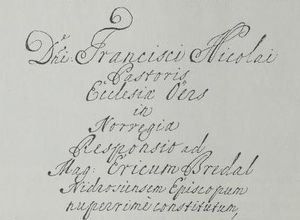 Dni. Francisci Nicolai
Pastoris
Ecclesiæ Oers
in
Norregia
Responsio ad
Mag: Ericum Bredal
Nidrosiensem Episcopum
nuperrime constitutum